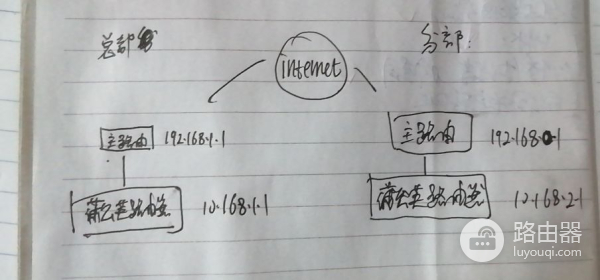 总部
分部:
internet
主路由 192.168.1.1
主路由 192.168.0.1
蒲公英路由器 10.168.1.1
蒲公英路由器 10.168.2.1
路由器
luyouqi.com